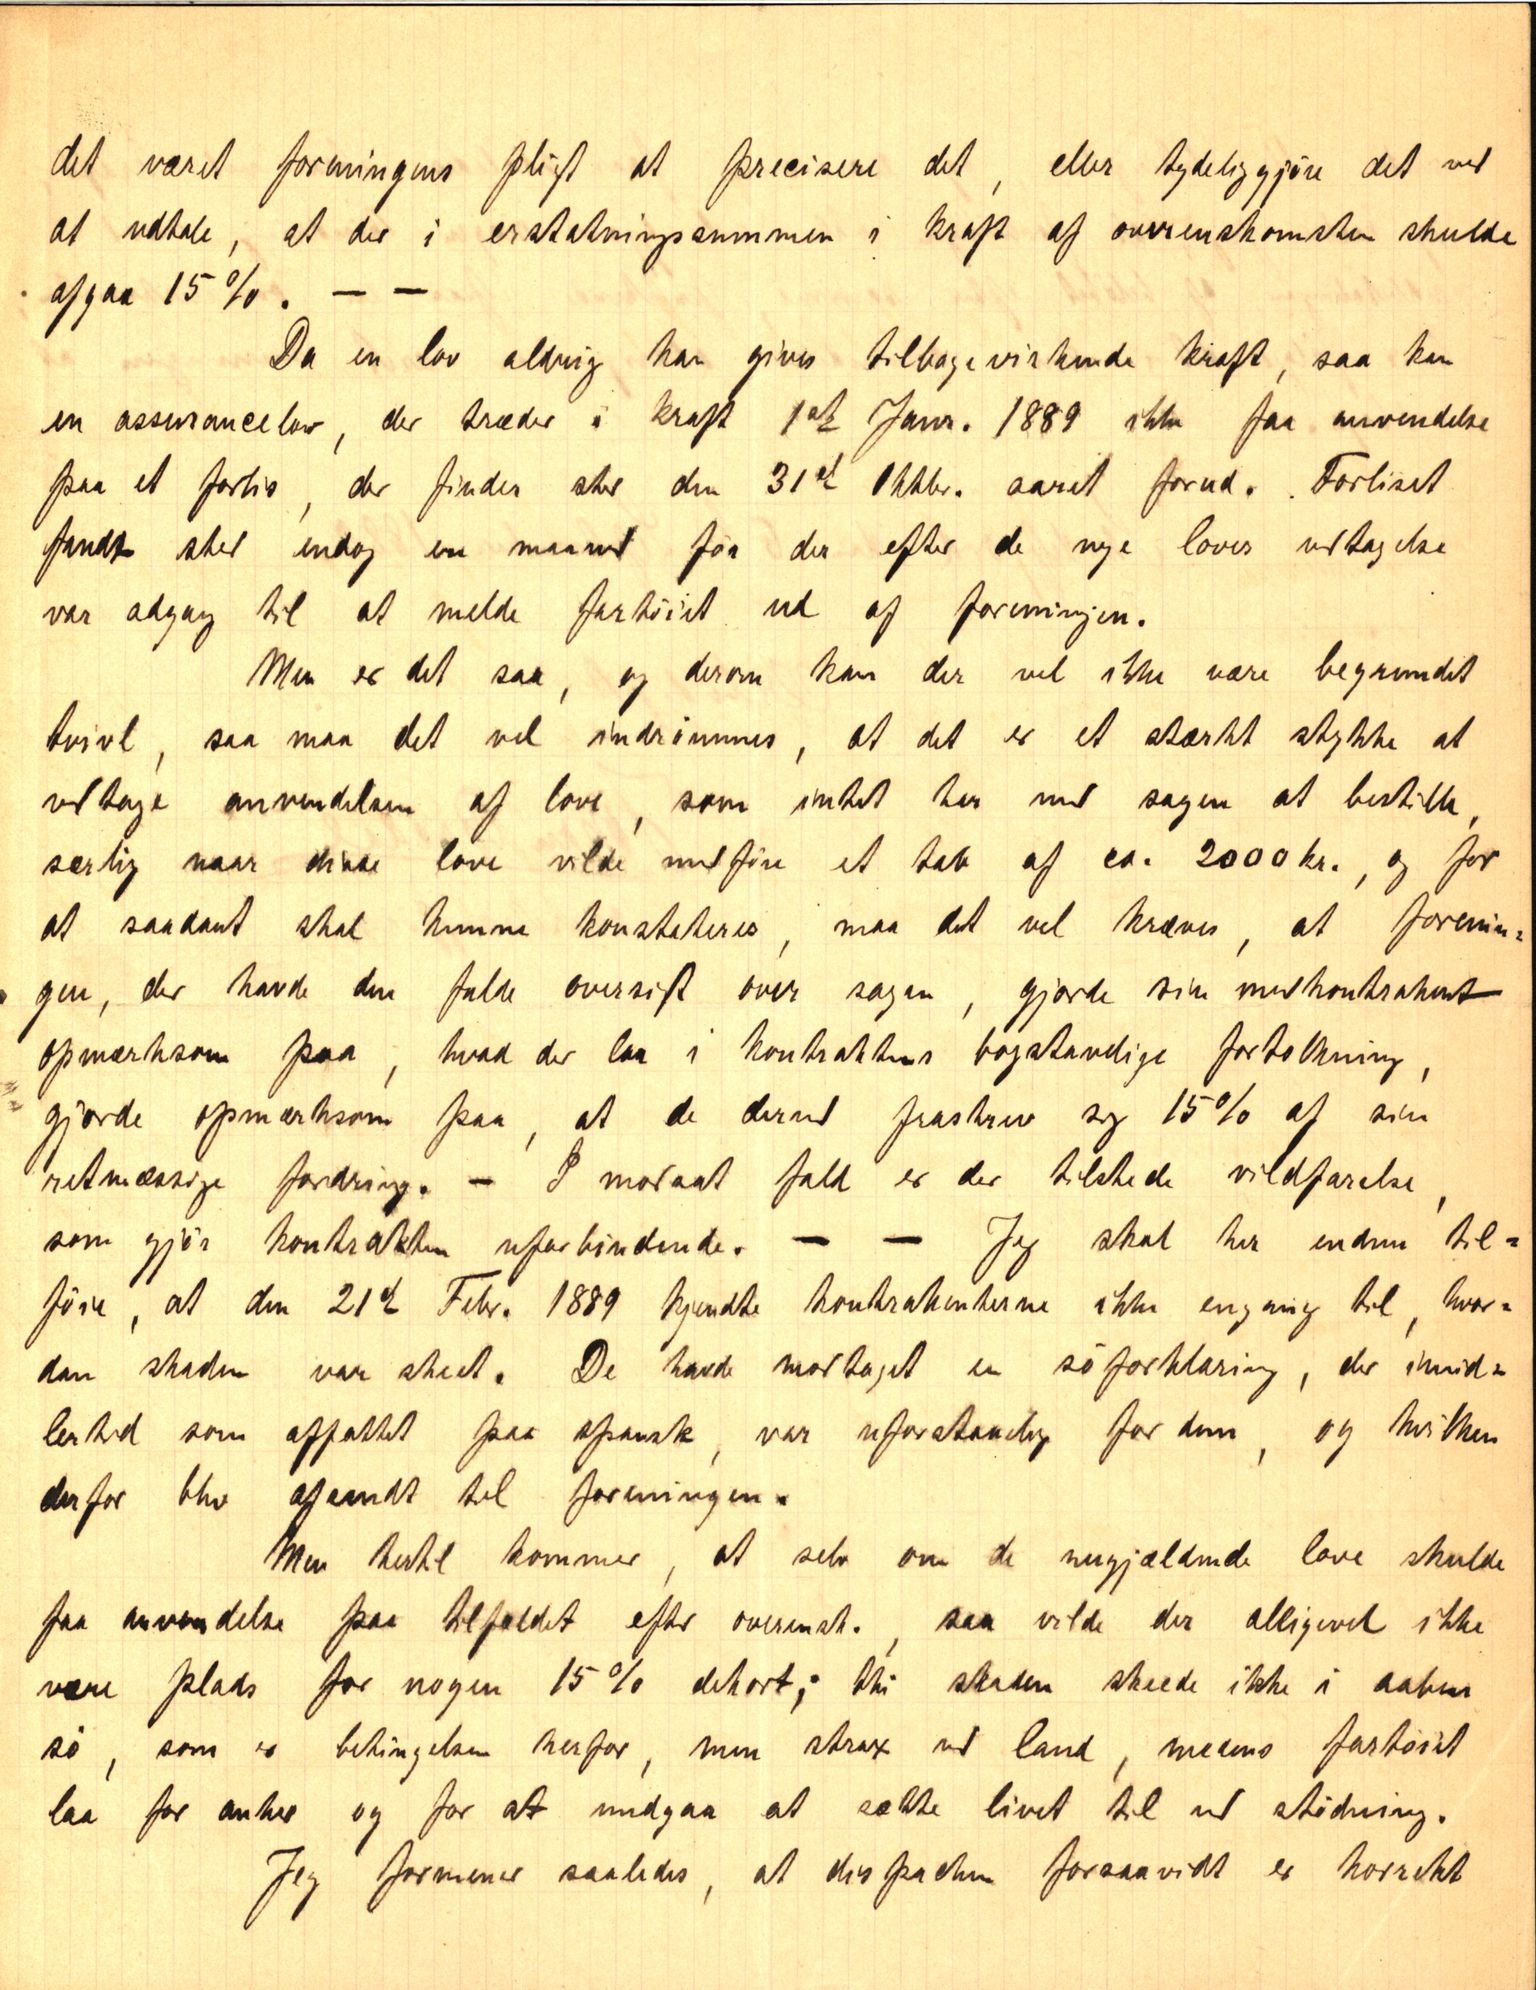 det været foreningens pligt at precisere det, eller tydeliggjøre det ved
at udtale, at der i erstatningssummen i kraft af overenskomsten skulde
afgaa 15%. — —
Da en lov aldrig kan gives tilbagevirkende kraft, saa kan
en assurancelov, der træder i kraft 1st Janr. 1889 ikke faa anvendelse
paa et forlis, der finder sted den 31st Oktbr. aaret forud. Forliset
fandt sted endog en maaned før der efter de nye loves vedtagelse
var adgang til at melde fartøiet ud af foreningen.
Men er det saa, og derom kan der vel ikke være begrundet
tvivl, saa maa det vel indrømmes, at det er et stærkt stykke at
vedtage anvendelsen af love, som intet har med sagen at bestille,
særlig naar disse love vilde medføre et tab af ca. 2000 kr., og for
at saadant skal kunne konstateres, maa det vel kræves, at forenin=
gen, der havde den fulde oversigt over sagen, gjorde sin medkontrahent
opmærksom paa, hvad der laa i kontraktens bogstavelige fortolkning,
gjorde opmærksom paa, at de derved fraskrev sig 15% af sin
retmæssige fordring. — I modsat fald er der tilstede vildfarelse,
som gjør kontrakten uforbindende. — — Jeg skal her endnu til=
føie, at den 21st Febr. 1889 kjendte kontrahenterne ikke engang til, hvor=
dan skaden var skeet. De havde modtaget en søforklaring, der imid=
lertid som affattet paa spansk, var uforstaaelig for dem, og hvilken
derfor blev afsendt til foreningen.
Men hertil kommer, at selv om de nugjældende love skulde
faa anvendelse paa tilfældet efter overensk., saa vilde der alligevel ikke
være plads for nogen 15% dekort; thi skaden skeede ikke i aaben
sø, som er betingelsen herfor, men strax ved land, medens fartøiet
laa for anker og for at undgaa at sætte livet til ved stødning.
Jeg formener saaledes, at dispachen forsaavidt er korrekt